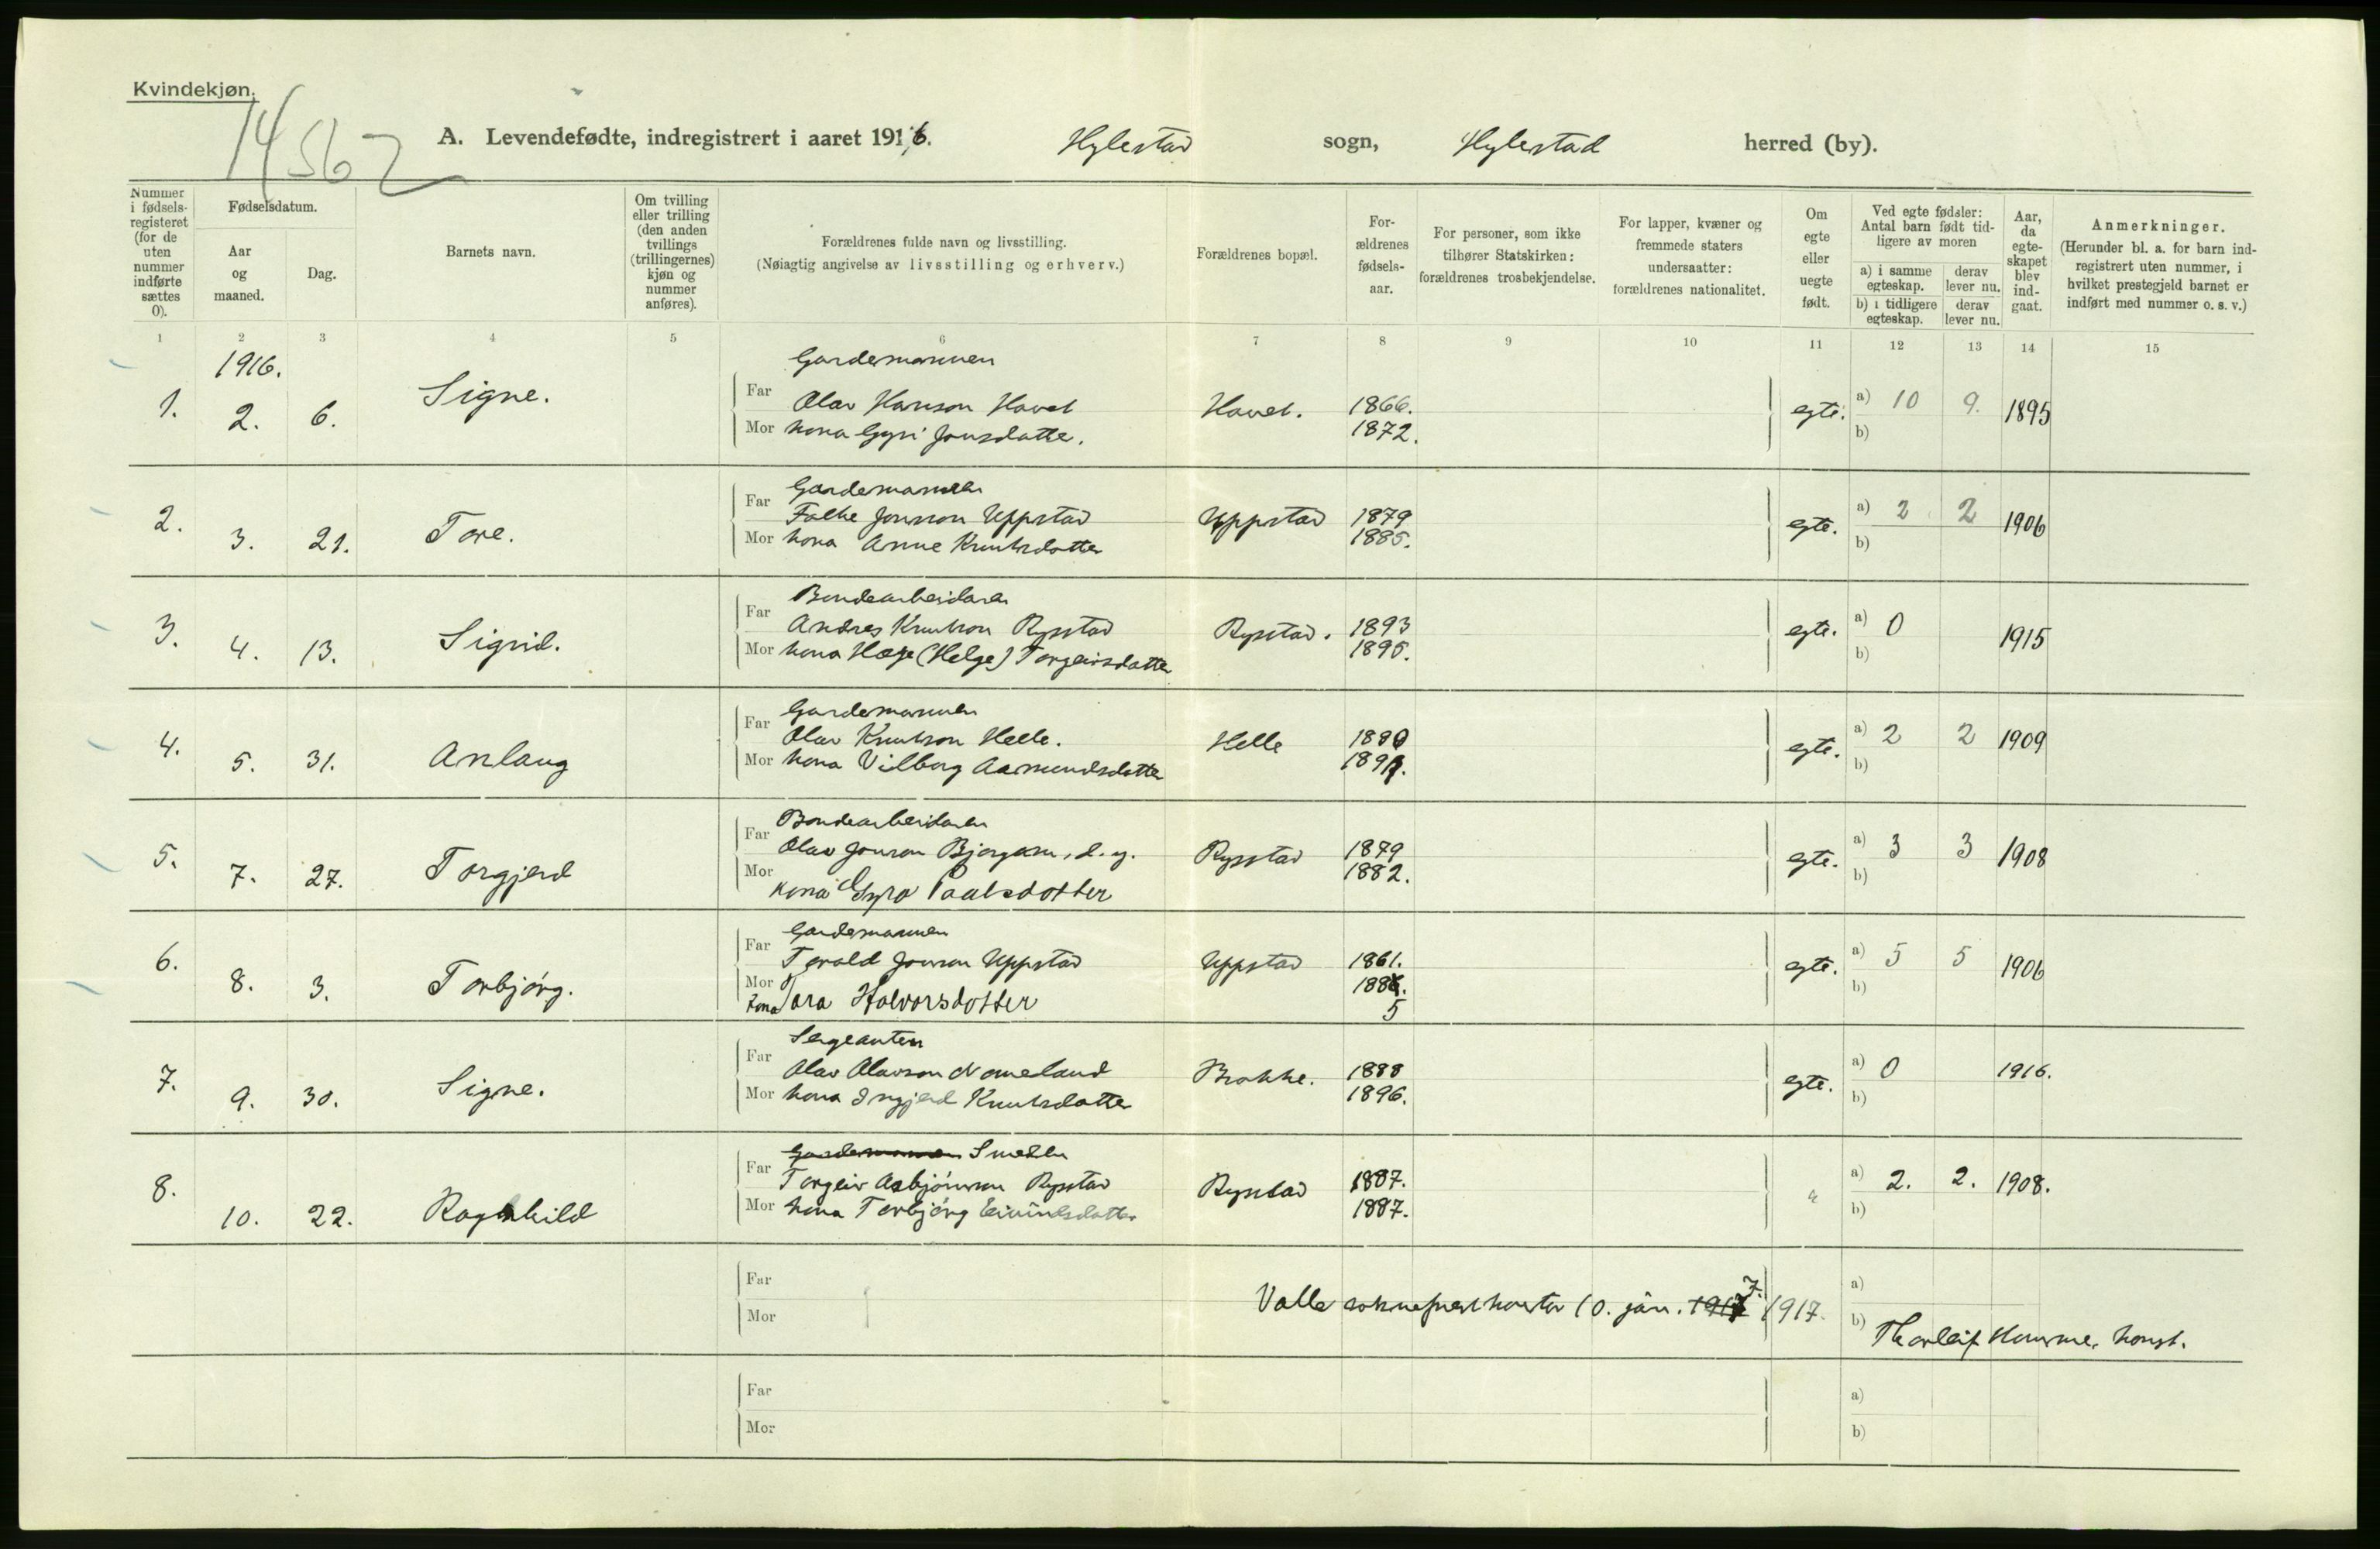 Kvindekjøn.
14562
A. Levendefødte, indregistrert i aaret 1916. Hylestad sogn, Hylestad herred (by).
Nummer i fødsels-registeret (for de uten nummer indførte sættes 0).
Fødselsdatum.
Aar og maaned.
Dag.
Barnets navn.
Om tvilling eller trilling (den anden tvillings (trillingernes) kjøn og nummer anføres).
Forældrenes fulde navn og livsstilling.
(Nøiagtig angivelse av livsstilling og erhverv.)
Forældrenes bopæl.
For-ældrenes fødsels-aar.
For personer, som ikke tilhører Statskirken: forældrenes trosbekjendelse.
For lapper, kvæner og fremmede staters undersaatter: forældrenes nationalitet.
Om egte eller uegte født.
Ved egte fødsler: Antal barn født tid-ligere av moren
a) i samme egteskap. derav lever nu.
b) i tidligere egteskap. derav lever nu.
Aar, da egte-skapet blev ind-gaat.
Anmerkninger.
(Herunder bl. a. for barn ind-registrert uten nummer, i hvilket prestegjeld barnet er indført med nummer o. s. v.)
1 2 3 4 5 6 7 8 9 10 11 12 13 14 15
1916.
Gardemannen
1. 2. 6. Signe. Far Olav Hanson Hovet Hovet. 1866. egte. a) 10 9. 1895
Mor kona Gyri Jonsdatter. 1872. b)
Gardemannen
2. 3. 21. Tore. Far Folke Jonson Uppstad Uppstad 1879 egte. a) 2 2 1906
Mor kona Anne Knutsdatter 1885. b)
Bondearbeidaren
3. 4. 13. Sigrid. Far Andres Knutson Rysstad Rysstad. 1893 egte. a) 0 1915
Mor kona Hæge (Helge) Torgeirsdatter 1895. b)
Gardemannen
4. 5. 31. Anlaug Far Olav Knutson Helle. Helle 1880 egte. a) 2 2 1909
Mor kona Vilborg Aamundsdatter 1891. b)
Bondearbeidaren
5. 7. 27. Torgjerd Far Olav Jonson Bjorgum, d. y. Rysstad 1879 egte. a) 3 3 1908
Mor kona Gyro Paalsdotter 1882. b)
Gardemannen
6. 8. 3. Torbjörg. Far Torald Jonson Uppstad Uppstad 1861. egte. a) 5 5 1906
Mor kona Tara Halvorsdotter 1885. b)
Sergeanten
7. 9. 30. Signe. Far Olav Olavson Nomeland Brokke. 1888 egte. a) 0 1916.
Mor kona Ingjerd Knutsdatter 1896. b)
Gardemannen Smeden
8. 10. 22. Ragnhild Far Torgeir Asbjörnson Rysstad Rysstad 1887. a) 2. 2. 1908.
Mor kona Torbjörg Eivindsdatter 1887. b)
Far a)
Mor Valle sokneprestkontor 10. jan. 1917 7. 1917. b)
Thorleif Homme, konst.
Far a)
Mor b)